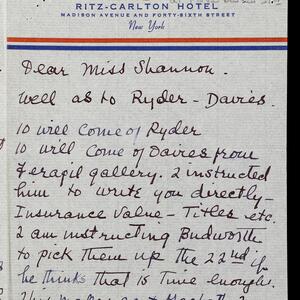 RITZ-CARLTON HOTEL
MADISON AVENUE AND FORTY-SIXTH STREET
New York
Dear Miss Shannon.
Well as to Ryder - Davies.
10 will come of Ryder
10 will come of Davies from
Feragil gallery. I instructed
him to write you directly-
Insurance value - Titles etc.
I am instructing Budworth
to pick them up the 22nd if
he thinks that is time enough.